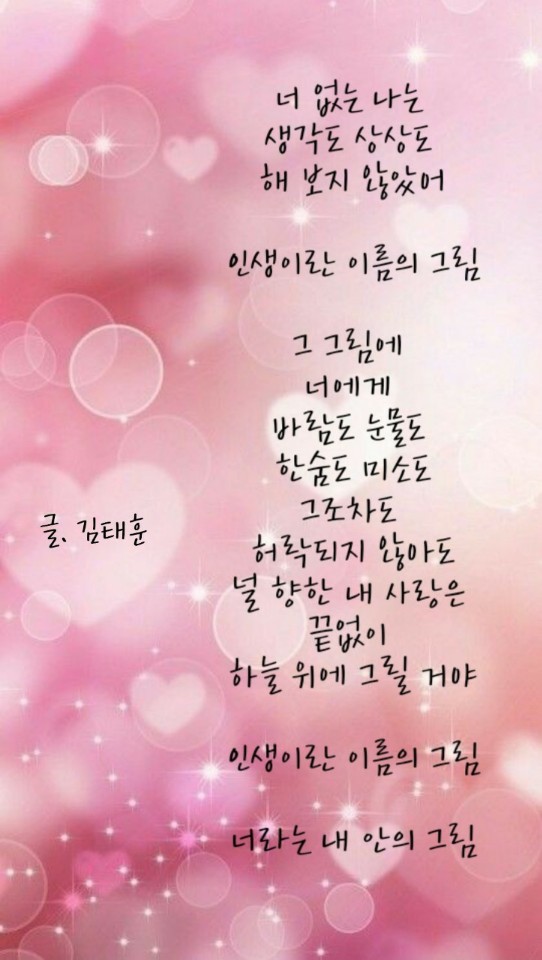 너 없는 나는
생각도 상상도
해 보지 않았어
인생이란 이름의 그림
그 그림에
너에게
바람도 눈물도
한숨도 미소도
그조차도
허락되지 않아도
널 향한 내 사랑은
끝없이
하늘 위에 그릴 거야
인생이란 이름의 그림
너라는 내 안의 그림
글. 김태훈